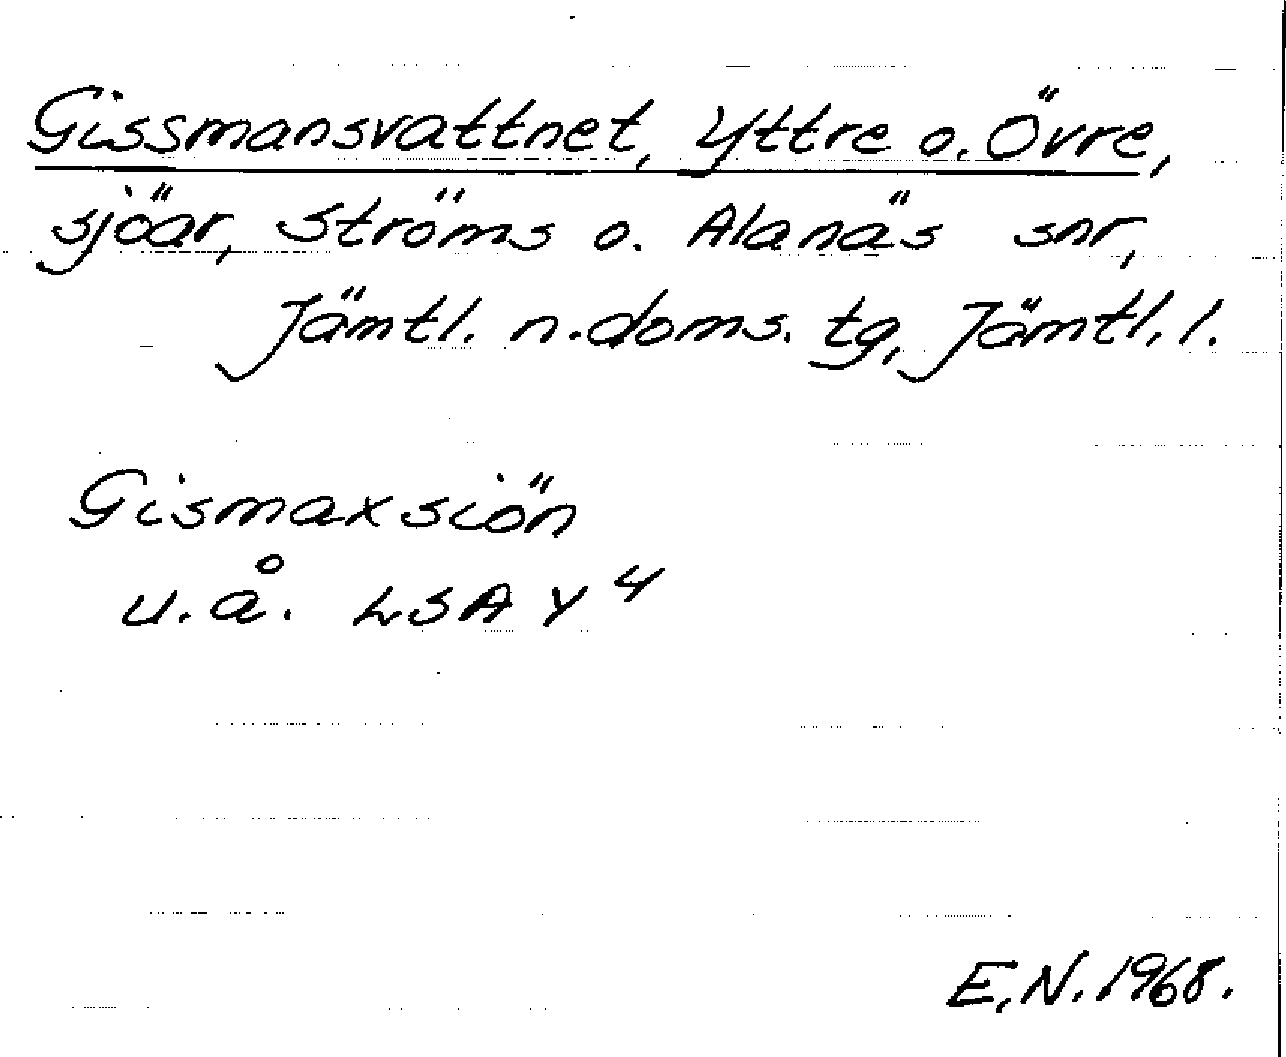 Gissmansvattnet, Yttre o. Övre,
sjöar, Ströms o. Alanäs snr,
Jämtl. n. doms. tg, Jämtl. l.
Gismaxsiön
u.å. LSA Y 4
E.N. 1968.